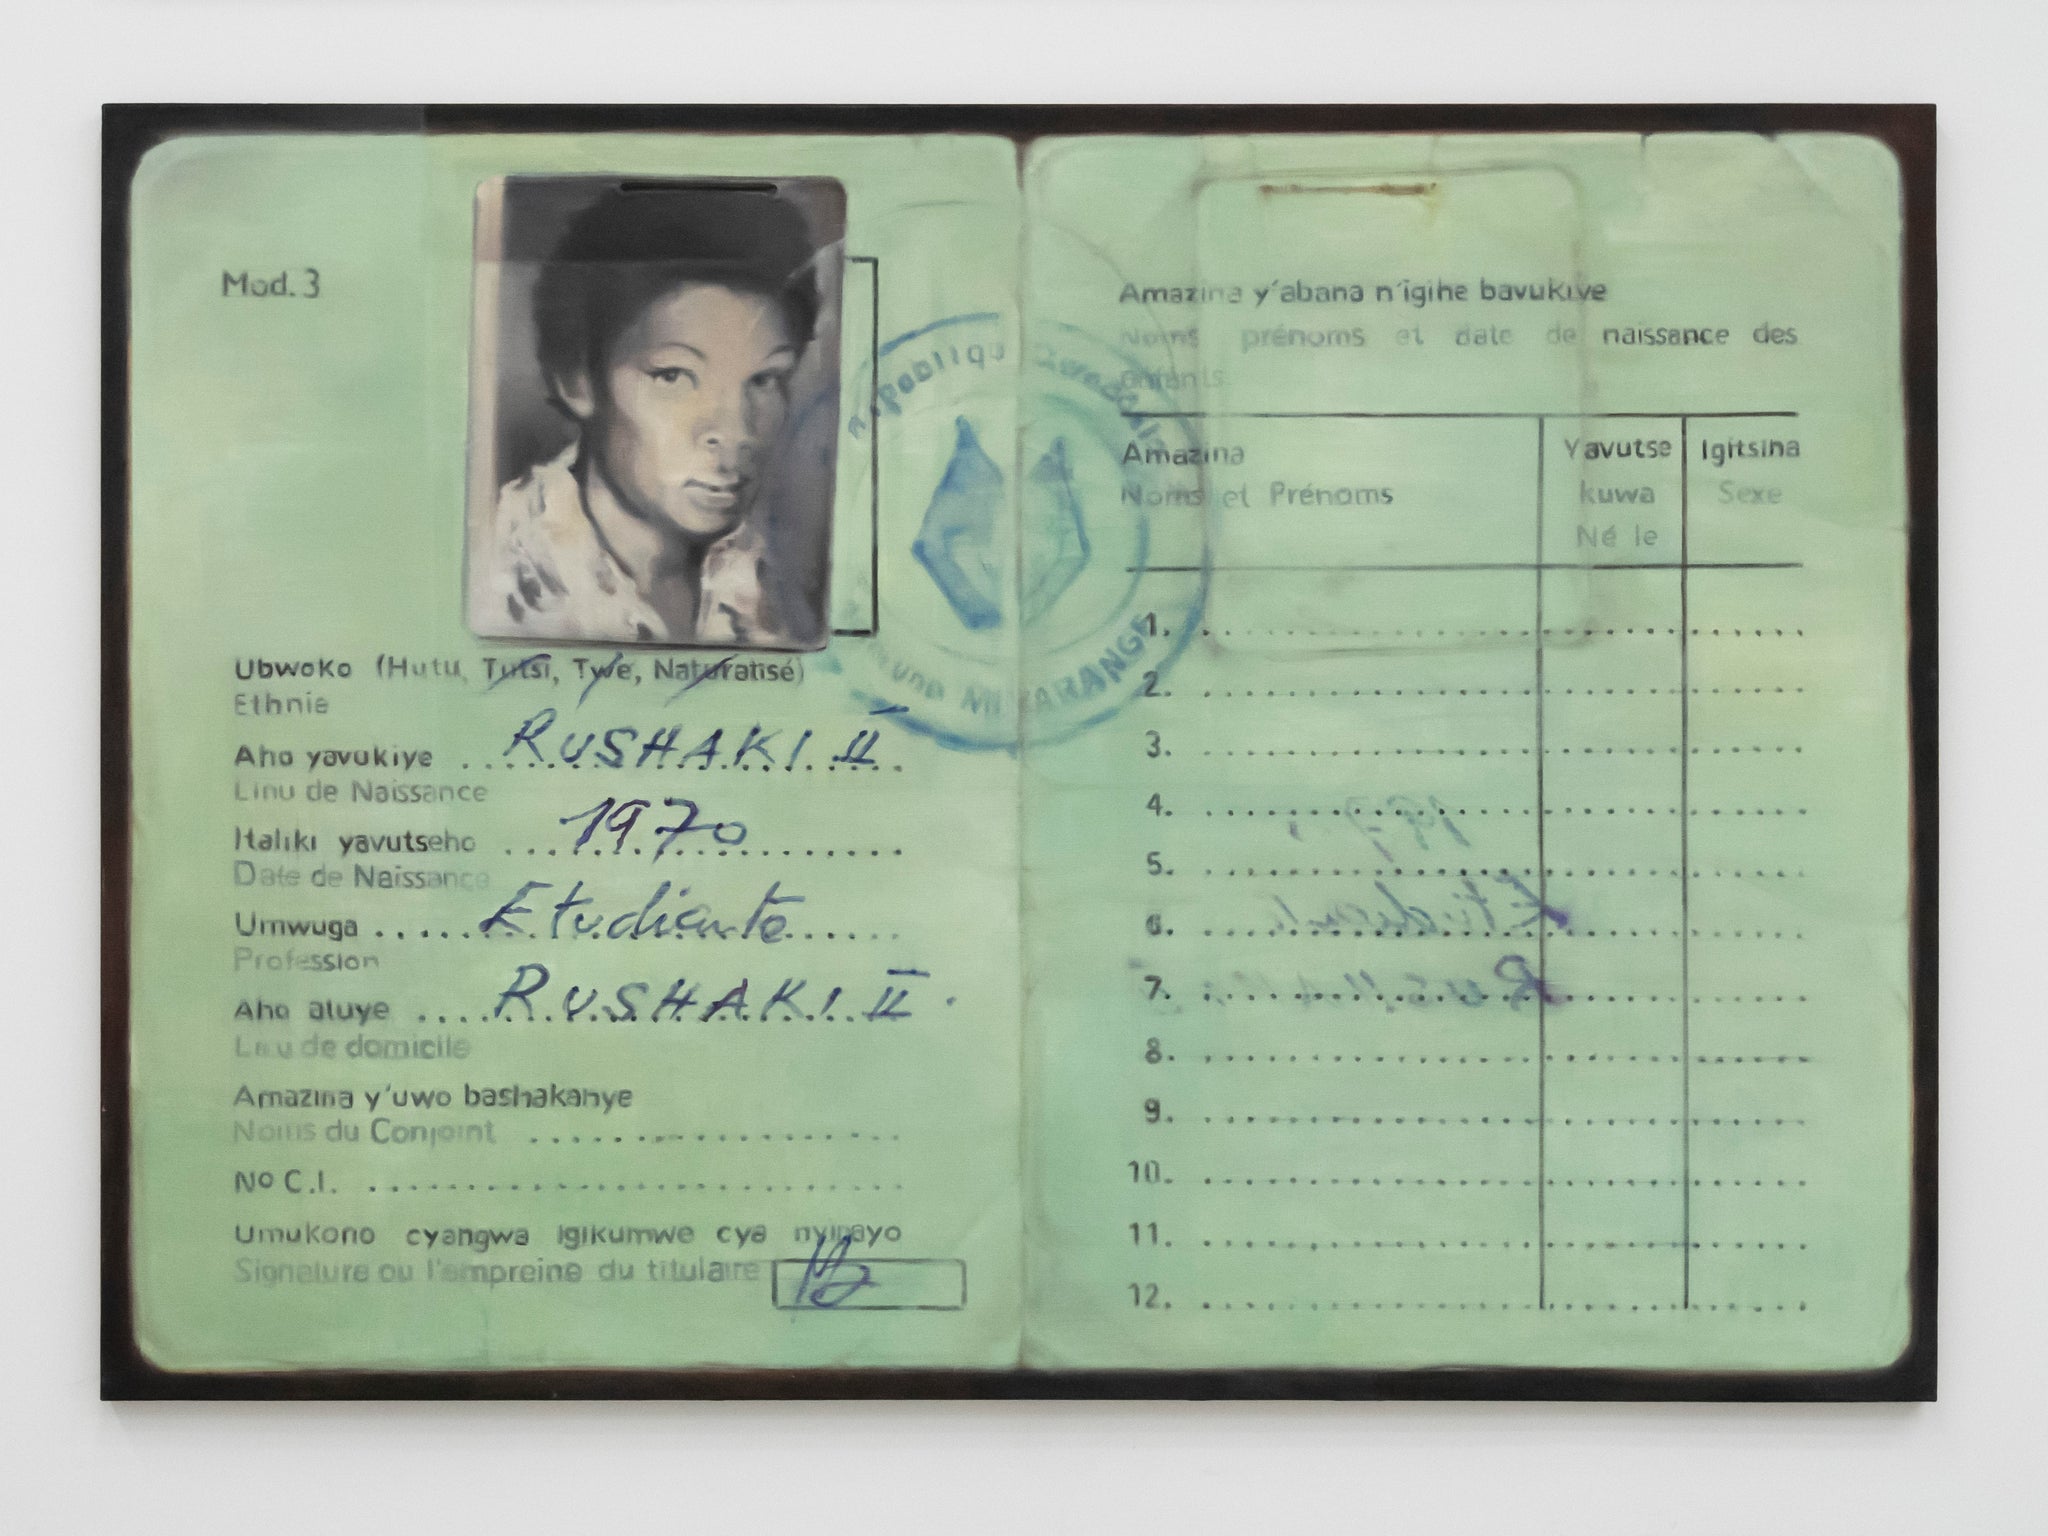 Mod. 3
Ubwoko (Hutu, Tutsi, Twe, Naturatisé)
Ethnie
Aho yavukiye RUSHAKI II
Linu de Naissance
Italiki yavutseho 1970
Date de Naissance
Umwuga Etudiante
Profession
Aho atuye RUSHAKI II
Lieu de domicile
Amazina y'uwo bashakanye
Noms du Conjoint
No C.I.
Umukono cyangwa igikumwe cya nyirayo
Signature ou l'empreine du titulaire
Republique Rwandaise
MUVARANGE
Amazina y'abana n'igihe bavukiye
Noms prénoms et date de naissance des
enfants
Amazina
Noms et Prénoms
Yavutse
kuwa
Né le
Igitsina
Sexe
1.
2.
3.
4.
5.
6.
7.
8.
9.
10.
11.
12.